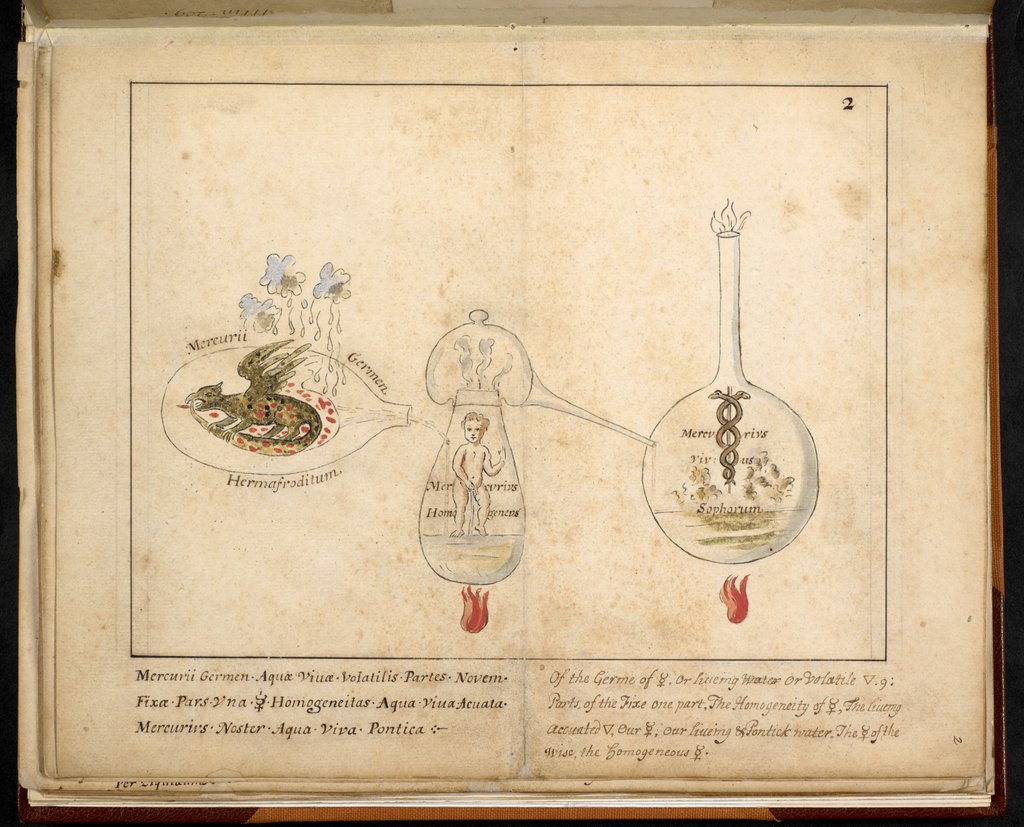 2
Mercurii
Germen
Hermafroditum
Mercurivs
Homogenevs
Mercvrivs
Vivus
Sophorum
Mercurii Germen · Aquæ Vivæ · Volatilis · Partes · Novem ·
Fixæ · Pars · Vna · ☿ · Homogeneitas · Aqua · Viva Acuata ·
Mercurivs · Noster · Aqua · Viva · Pontica
Of the Germe of ☿, Or liueing Water Or Volatile ▽. 9:
Parts, of the Fixe one part, The Homogeneity of ☿, The liueing
accuated ▽, Our ☿, our liueing & Pontick water, The ☿ of the
Wise, the homogeneous ☿.
2